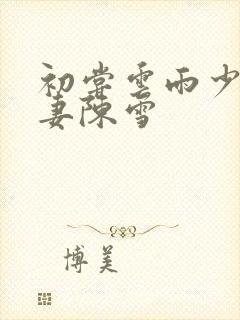 初尝雲雨少
妻陳雪
博美